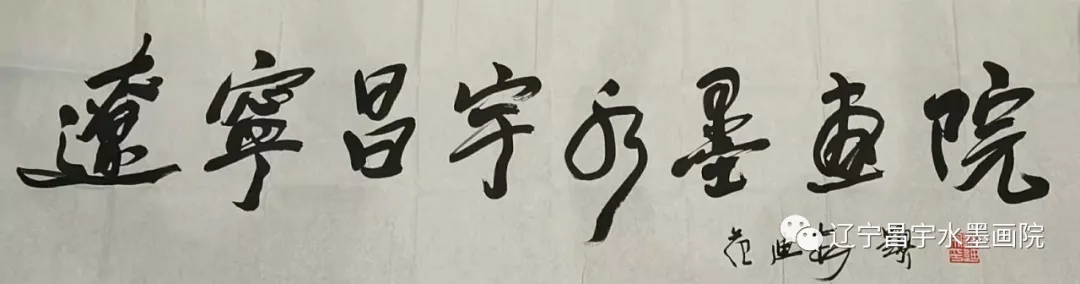 遼寧昌宇水墨畫院
辽宁昌宇水墨画院